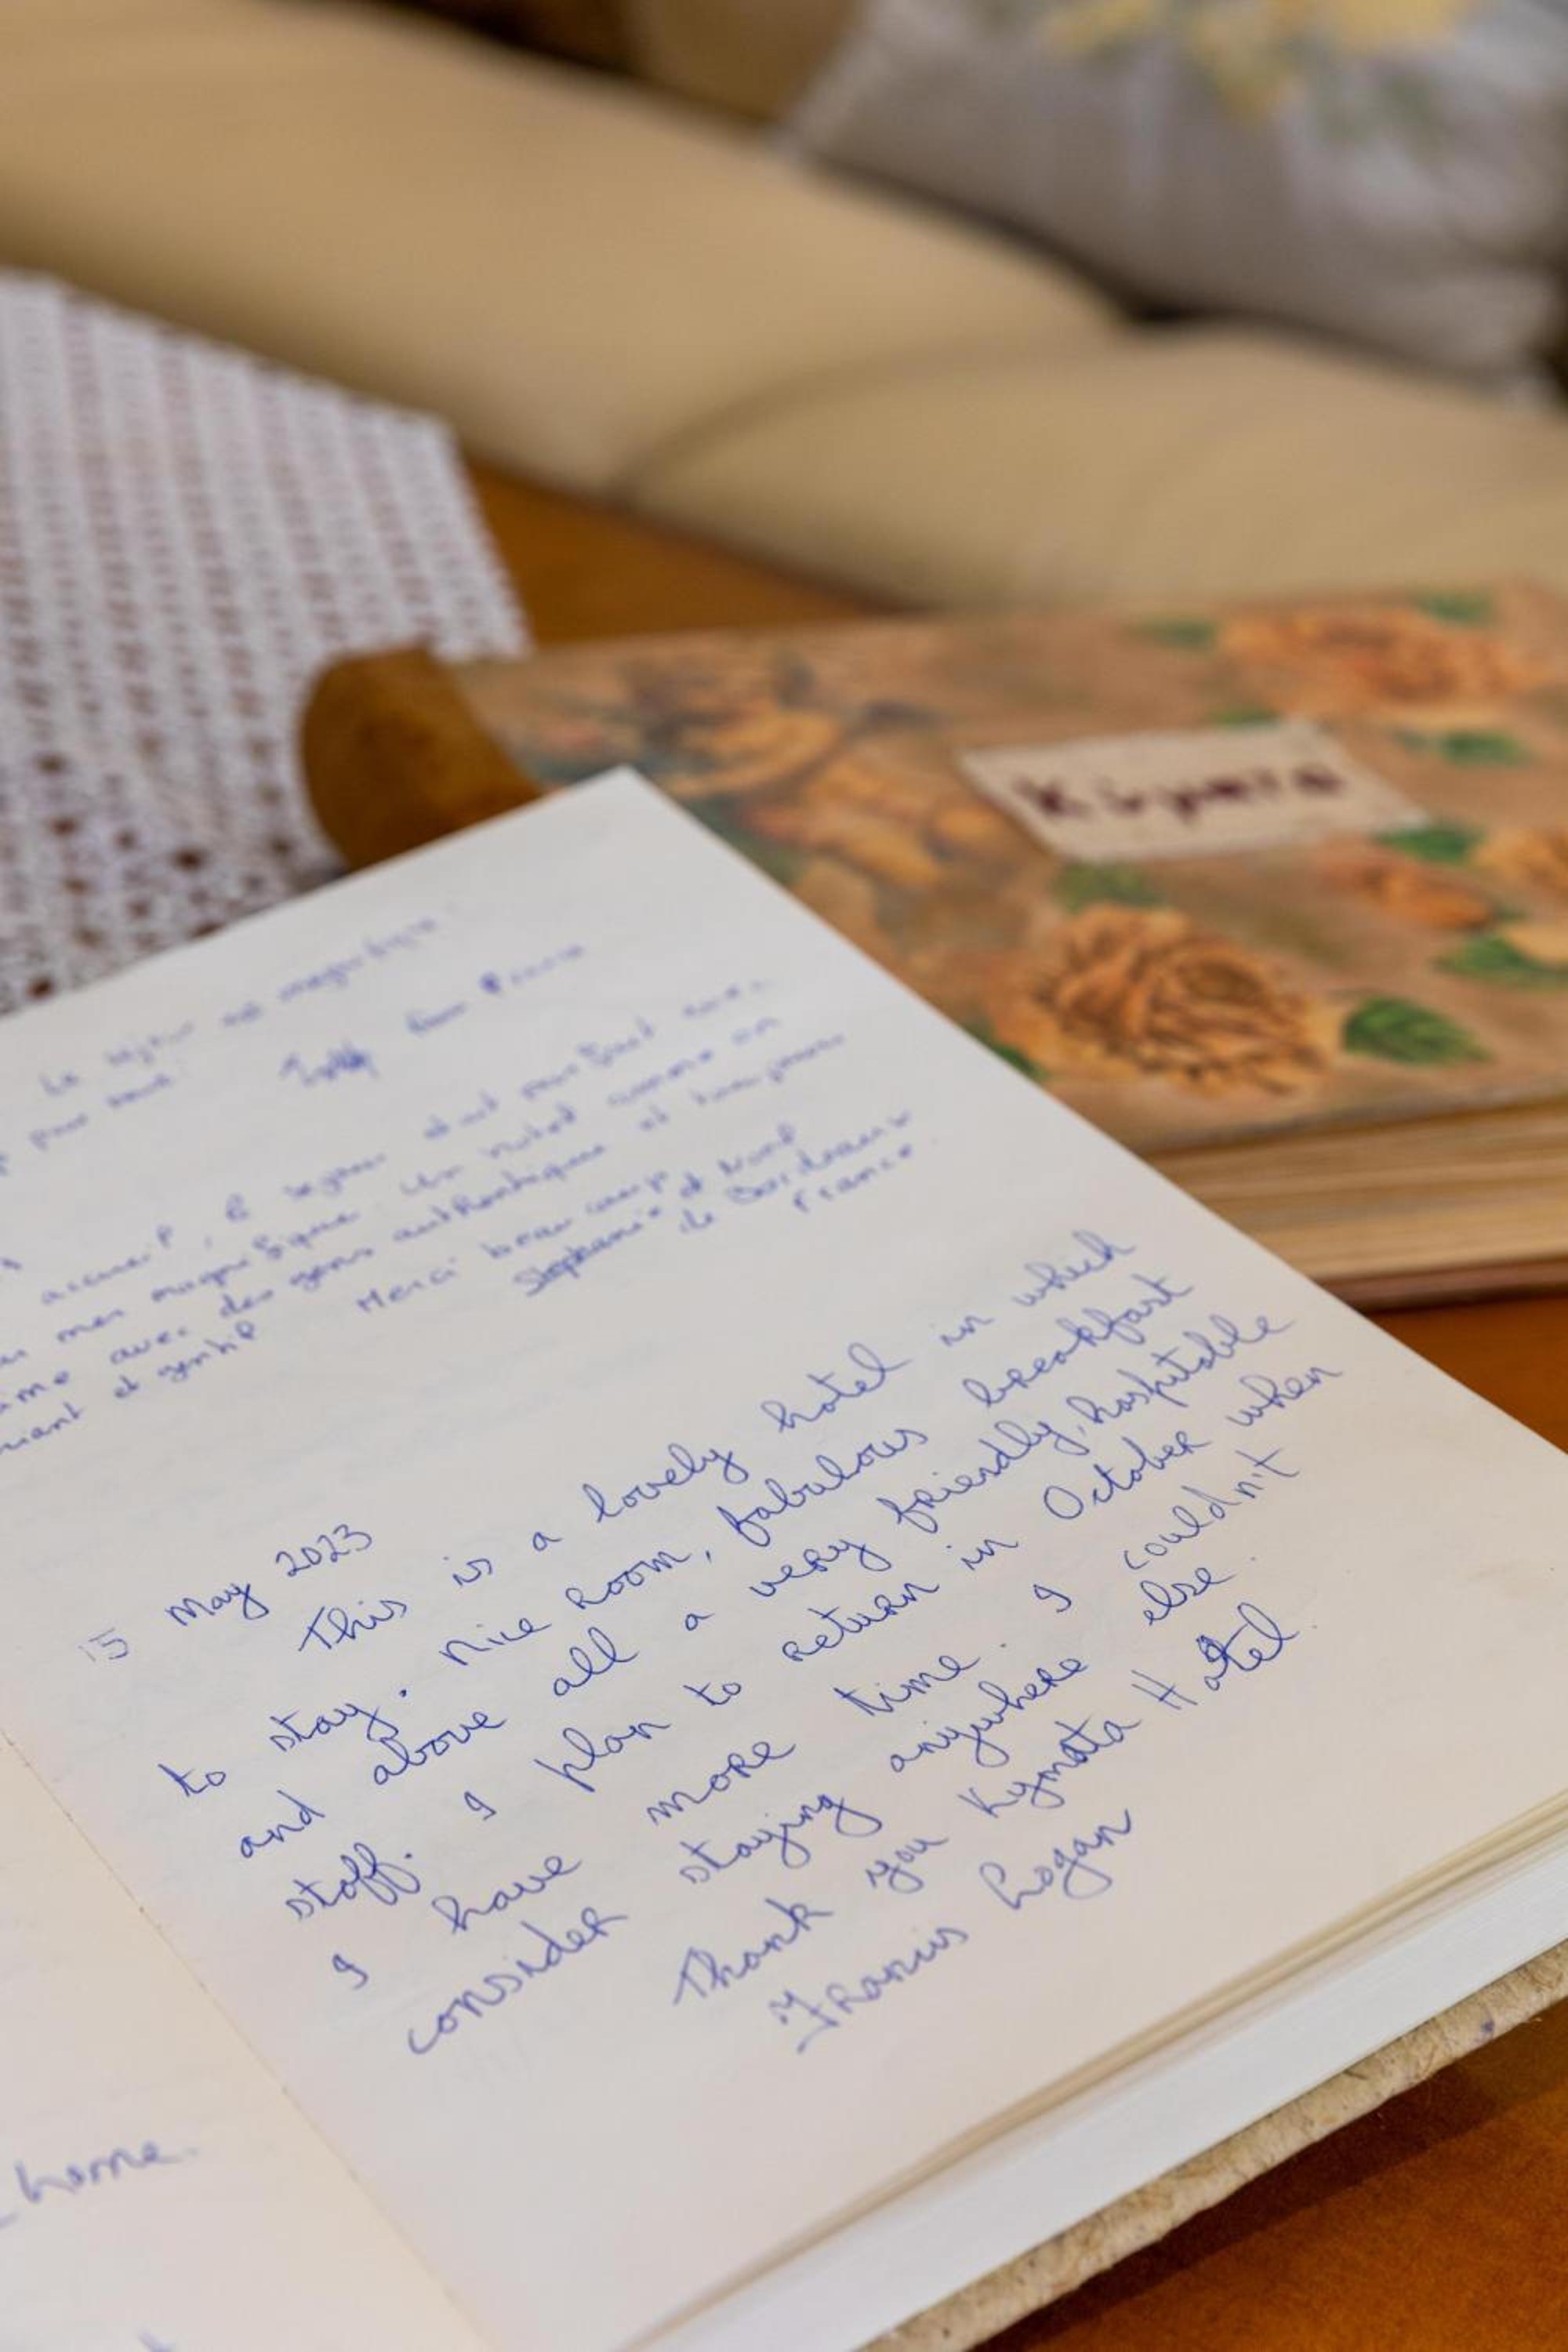 pour tout
accueil, le séjour était parfait avec
mer magnifique un hotel comme on
aime avec des gens authentique et toujours
riant et gentil Merci beaucoup
Stephanie et
de Bordeaux
France
15 May 2023
This is a lovely hotel in which
to stay. Nice room, fabulous breakfast
and above all a very friendly, hospitable
staff. I plan to return in October when
I have more time. I couldn't
consider staying anywhere else.
Thank you Kymata Hotel.
Francis Logan
home.
Κύματα